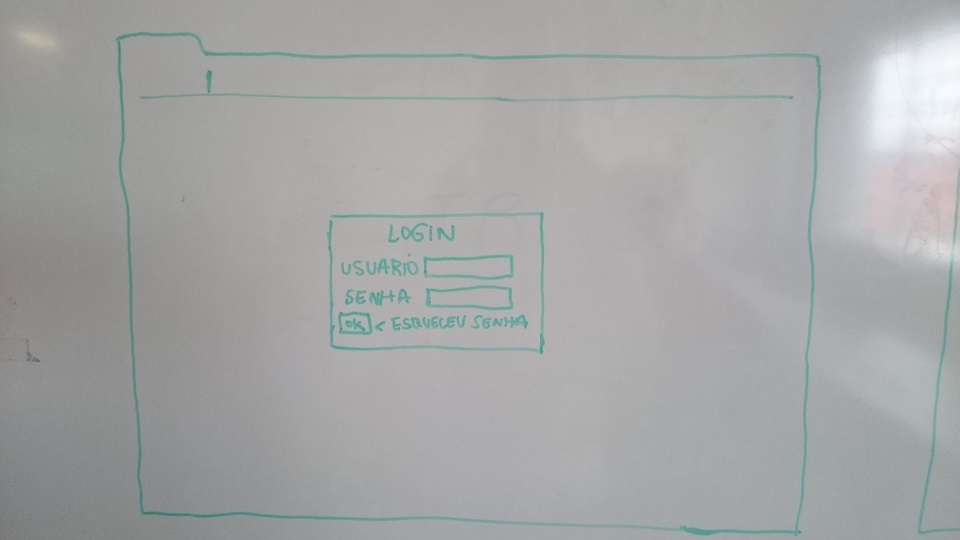 LOGIN
USUARIO
SENHA
OK < ESQUECEU SENHA